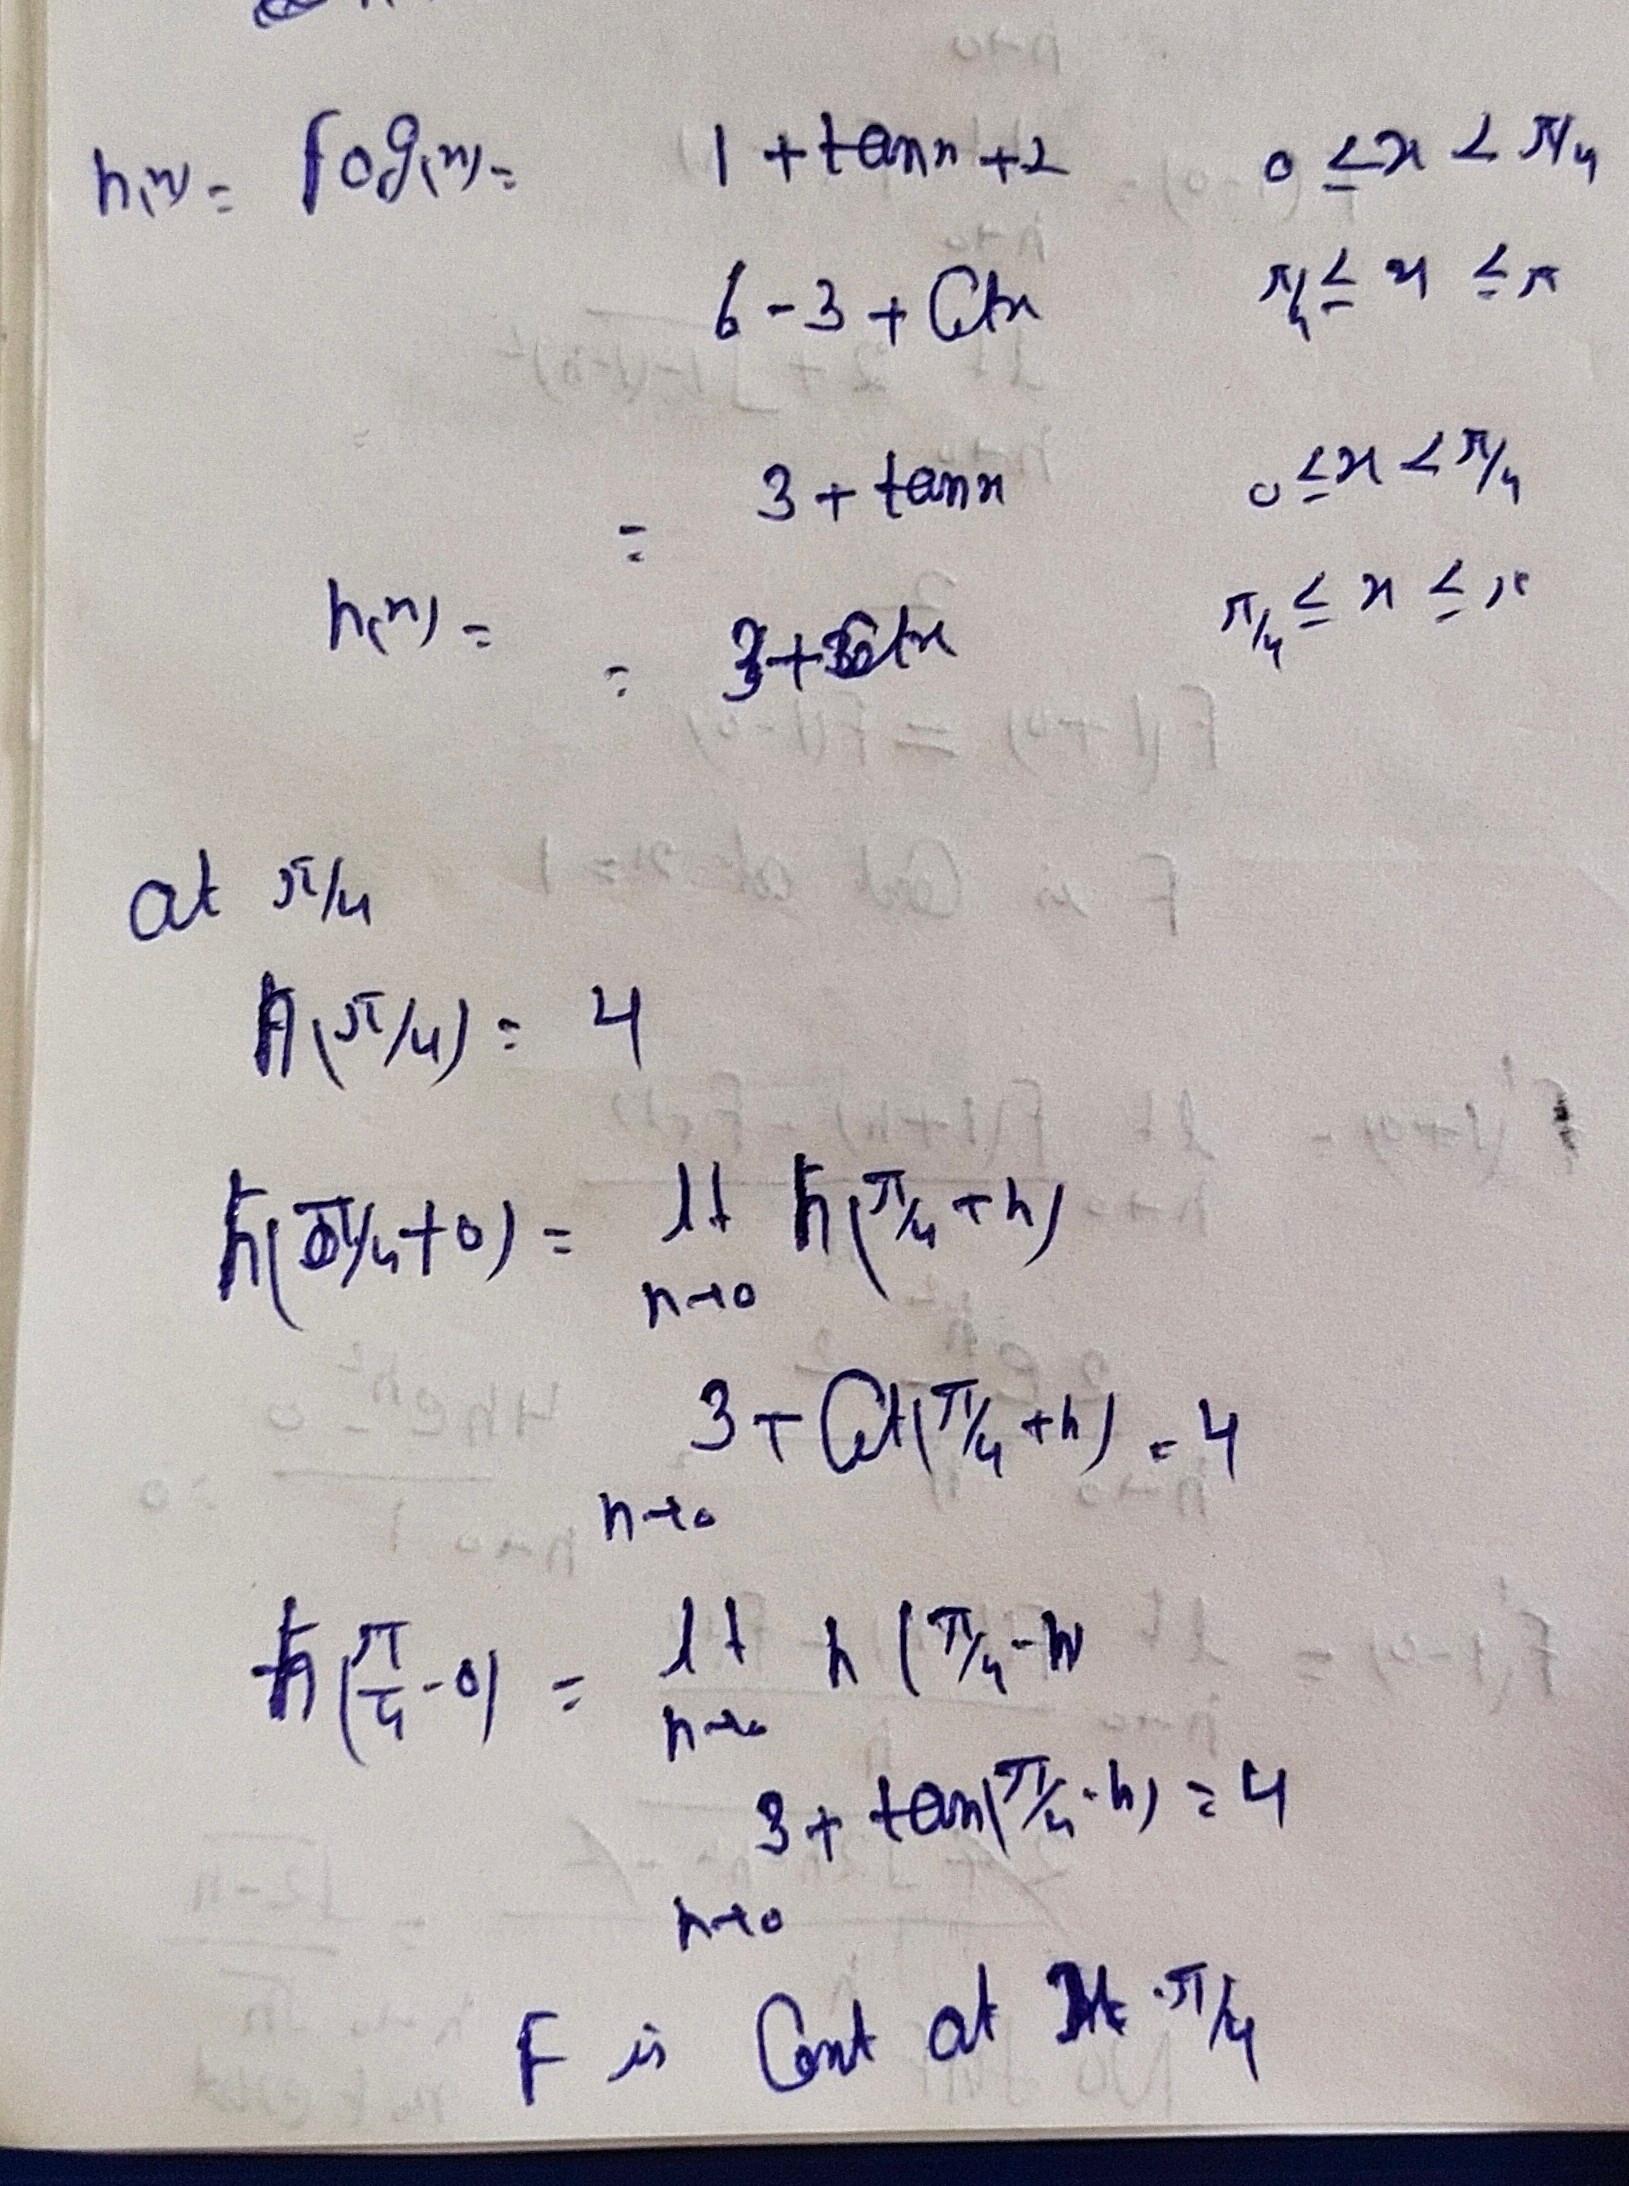 h(x) = Fog(x) = 1 + tanx + 2 0 ≤ x < π/4
6 - 3 + Cotx π/4 ≤ x ≤ π
= 3 + tanx 0 ≤ x < π/4
h(x) = = 3 + Cotx π/4 ≤ x ≤ π
at π/4
h(π/4) = 4
h(π/4 + 0) = lt h(π/4 + h)
h→0
3 + Cot(π/4 + h) = 4
h→0
h(π/4 - 0) = lt h(π/4 - h)
h→0
3 + tan(π/4 - h) = 4
h→0
F is Cont at π/4